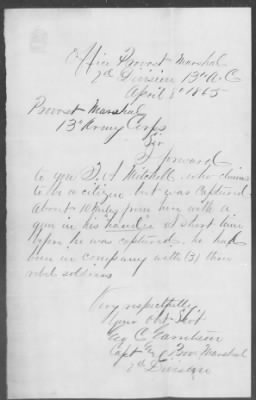 Office Provost Marshal
2d Division 13" A.C
April 8" 1865
Provost Marshal
13" Army Corps
Sir
I forward
to you J. A Mitchell, who claims
to be a citizen but was captured
about 10 miles from here with a
gun in his hands a short time
before he was captured, he had
been in company with (3) three
rebel soldiers
Very respectfully
Your Obt Servt
Geo C Garretson
Capt & Pro Marshal
2d Division